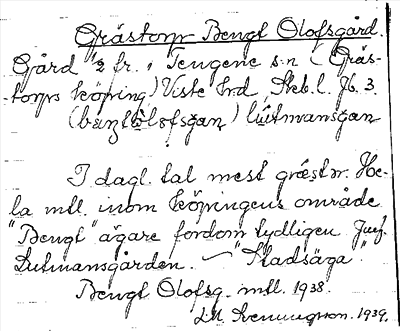 Grästorp Bengt Olofsgård.
Gård ½ fr. i Tengene s:n (Gräs-
torps köping) Viste hrd, Skb.l. Jb. 3.
(bæŋt òlofsgan) lutmansgan
I dagl. tal mest græstɒr. He-
la mtl. inom köpingens område
"Bengt" ägare fordom tydligen. Jmf.
Lutmansgården. — "Stadsäga".
Bengt Olofsg. mtl. 1938.
1939.